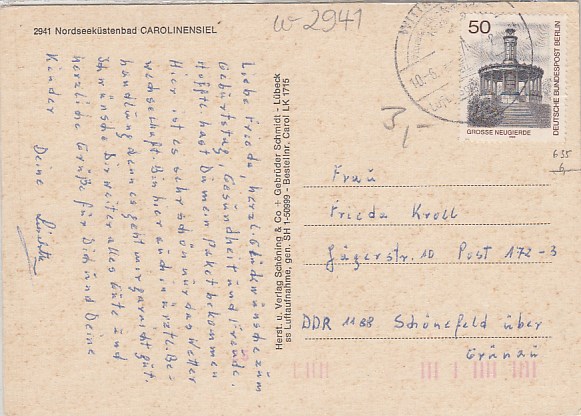 w-2941
2941 Nordseeküstenbad CAROLINENSIEL
Liebe Frieda, herzl. Glückwünsche zum
Geburtstag, Gesundheit und Freude.
Hoffte hast Du mein Paket bekommen
Hier ist es sehr schön nur das Wetter
wechselhaft. Bin hier auch in ärztl. Be-
handlung denn es geht mir gar nicht gut.
Ich wünsche Dir weiter alles Gute und
herzliche Grüße für Dich und Deine
Kinder Deine
Herst. u. Verlag Schöning & Co + Gebrüder Schmidt - Lübeck
ss Luftaufnahme, gen. SH 1-50999 - Bestellnr. Carol LK 1715
50
GROSSE NEUGIERDE
DEUTSCHE BUNDESPOST BERLIN
10.-6.
3,-
635
6,-
Frau
Frieda Kroll
Jägerstr. 10 Post 172-3
DDR 1188 Schönefeld über
Grünau